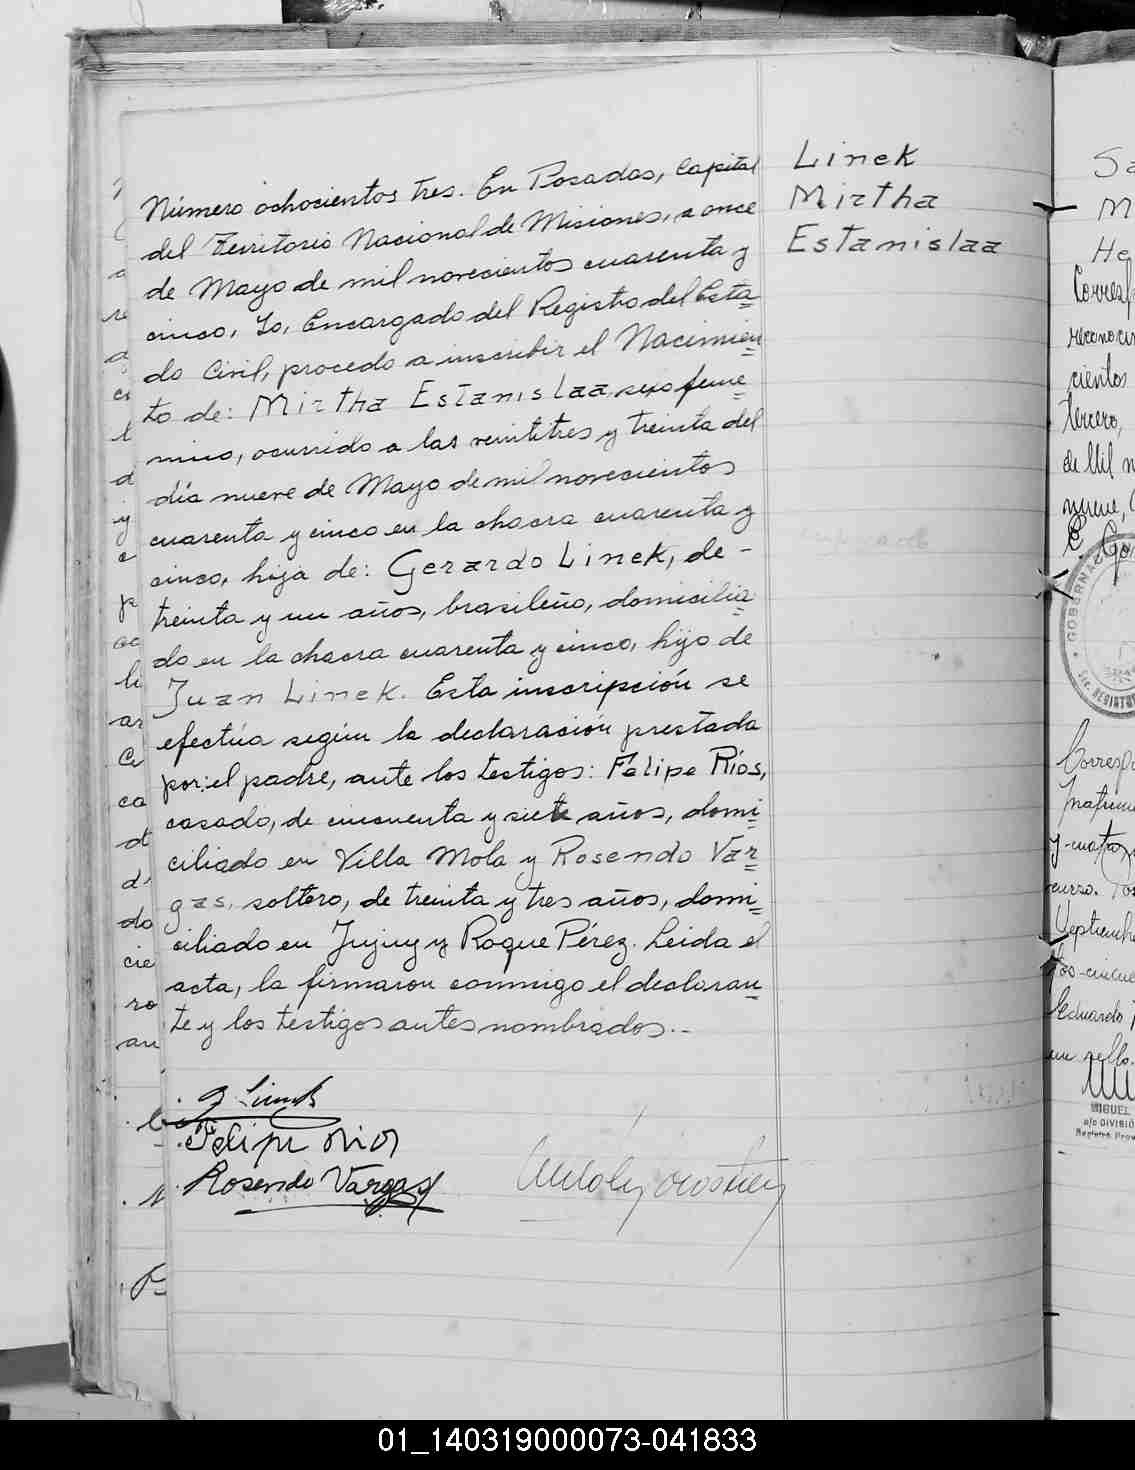 Número ochocientos tres. En Posadas, Capital
del Territorio Nacional de Misiones, a once
de Mayo de mil novecientos cuarenta y
cinco, Yo, Encargado del Registro del Esta=
do Civil, procedo a inscribir el Nacimien=
to de: Mirtha Estanislaa, sexo feme=
nino, ocurrido a las veintitres y treinta del
día nueve de Mayo de mil novecientos
cuarenta y cinco en la chacra cuarenta y
cinco, hija de: Gerardo Linek, de -
treinta y un años, brasileño, domicilia=
do en la chacra cuarenta y cinco, hijo de
Juan Linek. Esta inscripción se
efectúa según la declaración prestada
por: el padre, ante los testigos: Felipe Ríos,
casado, de cincuenta y siete años, domi=
ciliado en Villa Mola y Rosendo Var=
gas, soltero, de treinta y tres años, domi=
ciliado en Jujuy y Roque Pérez. Leida el
acta, la firmaron conmigo el declaran=
te y los testigos antes nombrados.-
G Linek
Felipe Rios
Rosendo Vargas
Linek
Mirtha
Estanislaa
Corresp
reconocim
cientos
tercero,
de Mil n
nueve,
GOBERNAC
REGISTRO
Corresp
y cuatro
curso.
Septiembre
Eduardo
un sello.
MIGUEL
a/c DIVISIÓ
Registro Prov
01_140319000073-041833